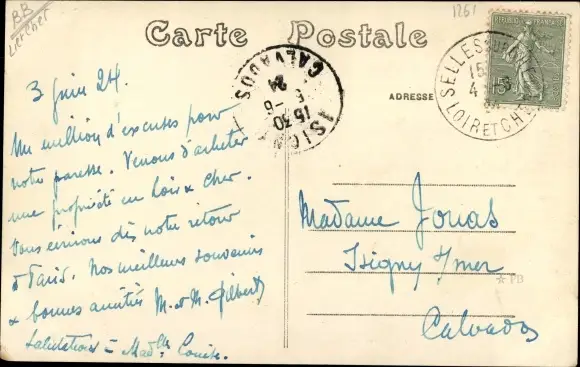 BB
Loircher
1261
Carte Postale
ADRESSE
REPUBLIQUE FRANÇAISE
15
SELLES SUR
15
4
LOIR ET CHER
ISIGNY
15 30
5 -6
24
CALVADOS
3 juin 24.
Un million d'excuses pour
notre paresse. Venons d'acheter
une propriété en Loir & Cher.
Vous écrirons dès notre retour
à Paris. Nos meilleurs souvenirs
& bonnes amitiés M. et M. Gilbert
Salutations à Mad.lle Louise.
Madame Jouas
Isigny s/mer
Calvados
PB